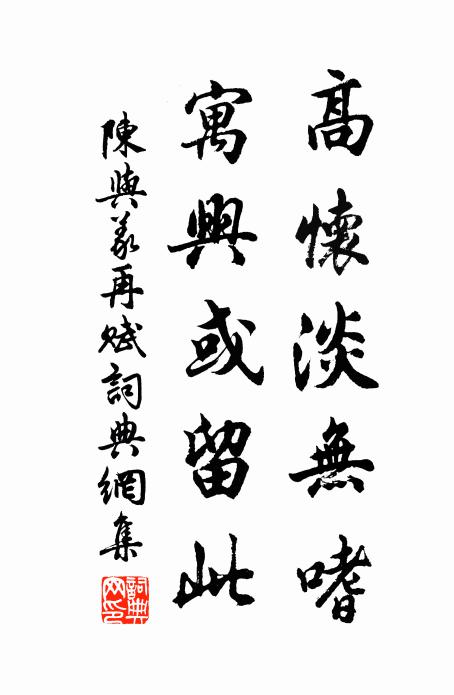 高懷淡無嗜
寓興或留此
陳與義再賦詞典網集
詞典网印